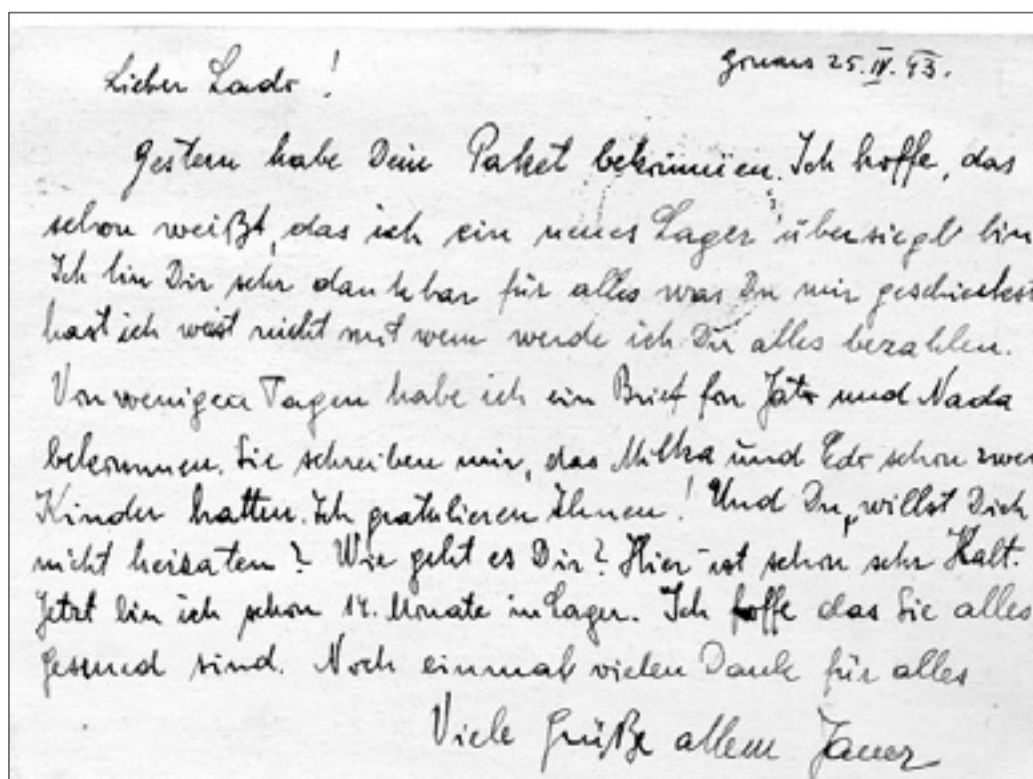 Gonars 25. IV. 43.
Lieber Lado!
Gestern habe Dein Paket bekommen. Ich hoffe, das
schon weißt, das ich ein neues Lager übersiegelt bin
Ich bin Dir sehr dankbar für alles was Du mir geschicktest
hast ich weist nicht mit wem werde ich Dir alles bezahlen.
Vor wenigen Tagen habe ich ein Brief fon Jato und Nada
bekommen. Sie schreiben mir, das Milka und Edo schon zwei
Kinder hatten. Ich gratulieren Ihnen! Und Du, willst Dich
nicht heiraten? Wie geht es Dir? Hier ist schon sehr Kalt.
Jetzt bin ich schon 14. Monate in Lager. Ich hoffe das Sie alles
gesund sind. Noch einmal vielen Dank für alles
Viele Grüße allem Janez